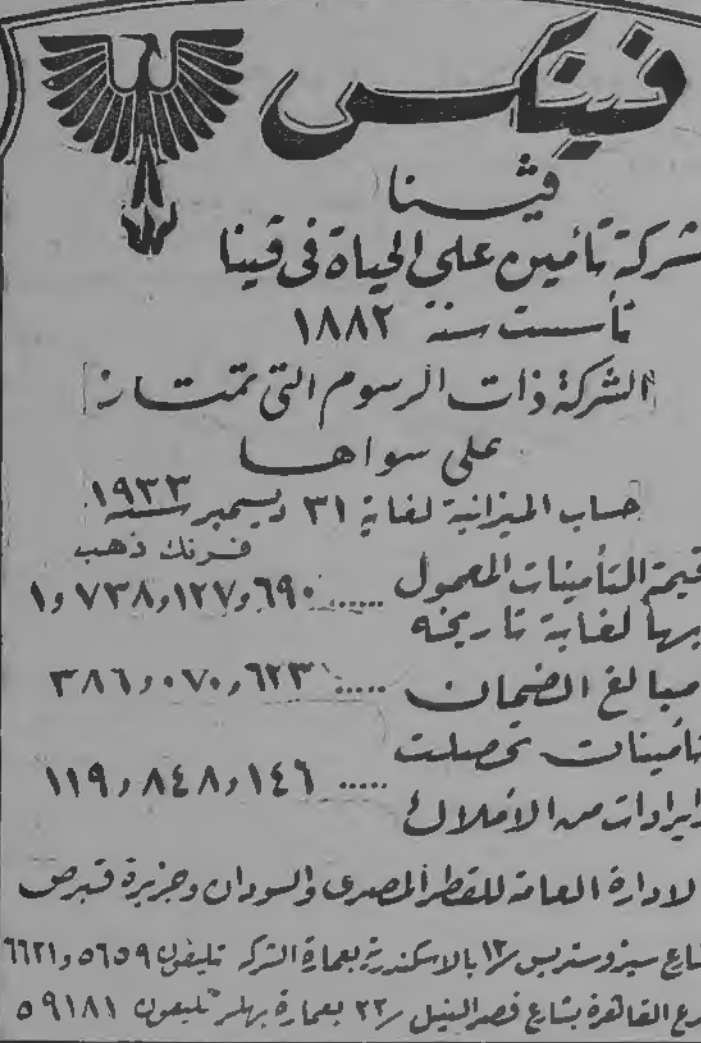 فينكس
ڤينا
شركة تأمين على الحياة فى ڤينا
تأسست سنة ١٨٨٢
الشركة ذات الرسوم التى تمتاز
على سواها
حساب الميزانية لغاية ٣١ ديسمبر سنة ١٩٣٣
فرنك ذهب
قيمة التأمينات المعمول ...... ١,٧٣٨,١٢٧,٦٩٠
بها لغاية تاريخه
مبالغ الضمان ...... ٣٨٦,٠٧٠,٦٢٣
تأمينات تحصلت
...... ١١٩,٨٤٨,١٤٦
ايرادات من الاملاك
الادارة العامة للقطر المصرى والسودان وجزيرة قبرص
شارع سيزوستريس ١٢ بالاسكندرية بعمارة الشركة تليفون ٥٦٥٩ و ٦٦٢١
فرع القاهرة بشارع قصر النيل ٢٢ بعمارة بهلر تليفون ٥٩١٨١